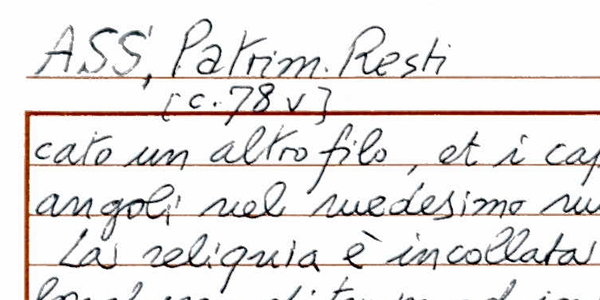 ASS, Patrim. Resti
[c. 78 v]
cato un altro filo, et i cap
angoli nel medesimo
La reliquia è incollata